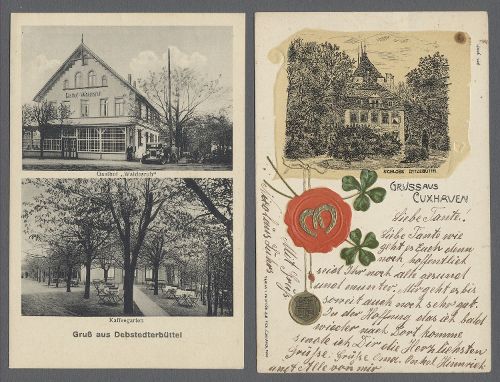 Gasthof „Waldesruh“
Kaffeegarten
Gruß aus Debstedterbüttel
SCHLOSS RITZEBÜTTEL
GRUSS AUS
CUXHAVEN
Liebe Tante!
Liebe Tante wie
geht es Euch denn
noch hoffentlich
seid Ihr noch alle gesund
und munter. Mir geht es bis
soweit auch noch sehr gut.
In der Hoffnung das ich bald
wieder nach Dort komme
sende ich Dir die Herzlichsten
Grüße. Grüße Oma. Onkel Heinrich
und Alle von mir